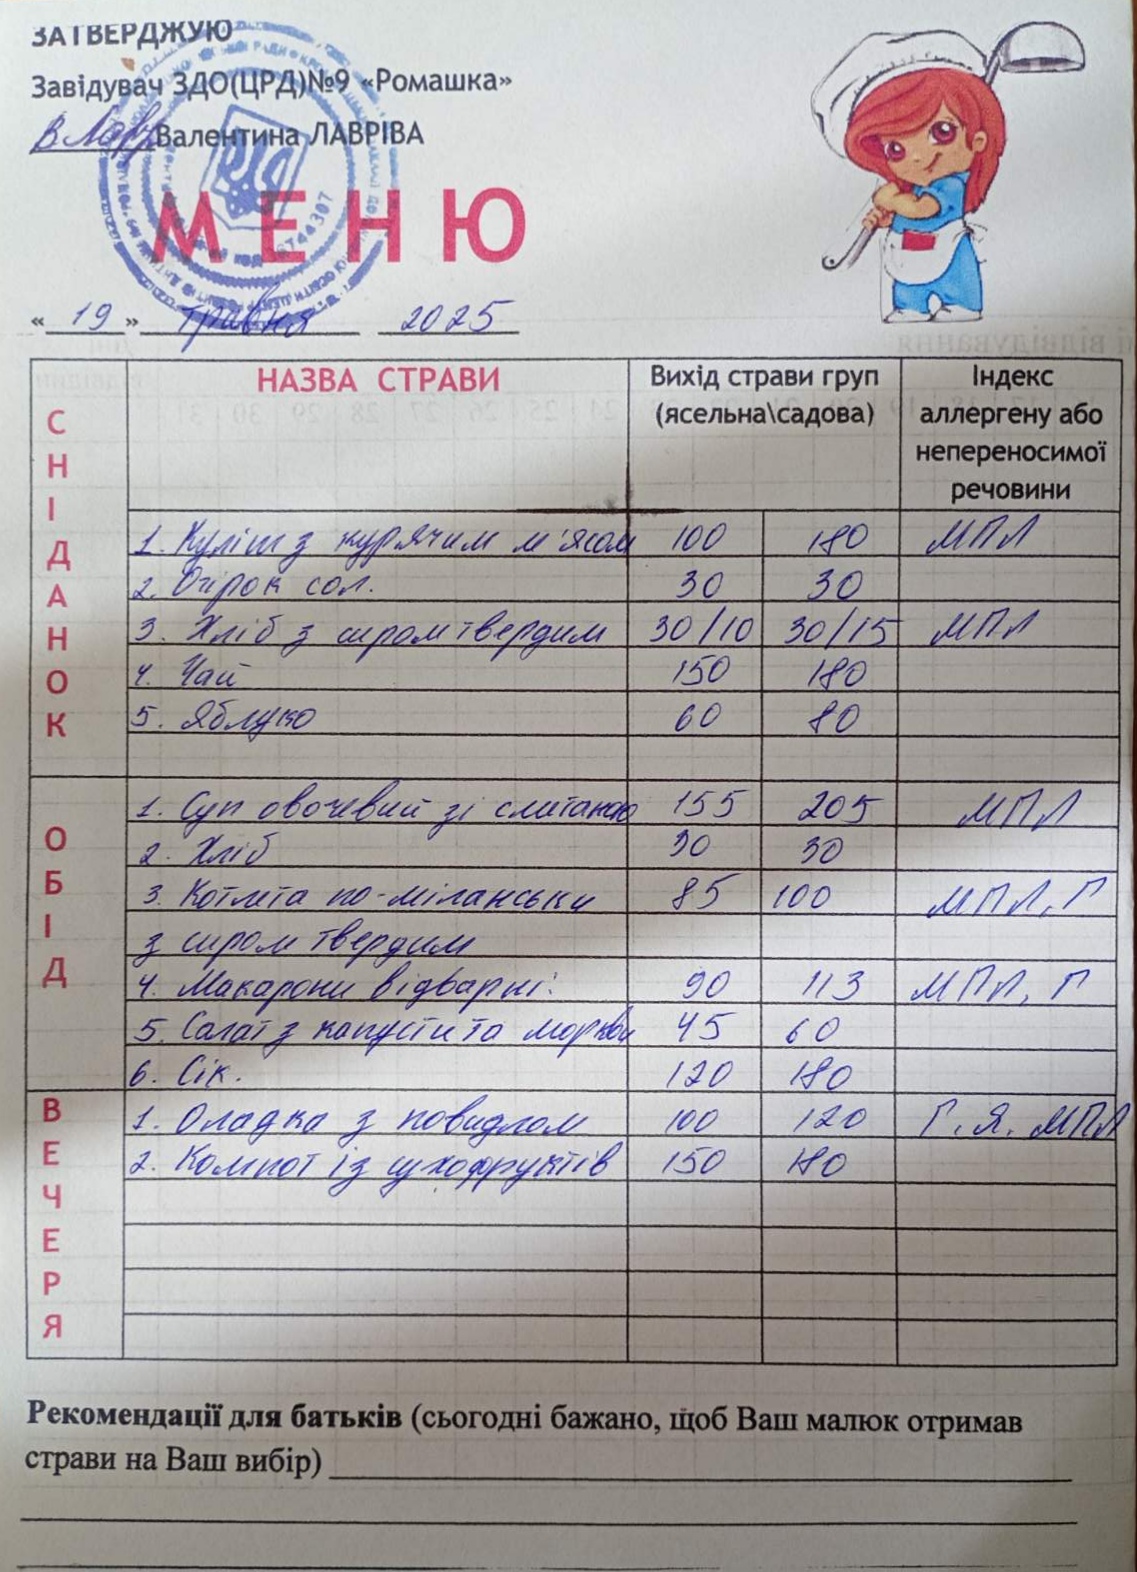 ЗАТВЕРДЖУЮ
Завідувач ЗДО(ЦРД)№9 «Ромашка»
Валентина ЛАВРІВА
МЕНЮ
« 19 » травня 2025
СНІДАНОК
НАЗВА СТРАВИ
Вихід страви груп (ясельна\садова)
Індекс аллергену або непереносимої речовини
1. Куліш з курячим м'ясом 100 180 МПЛ
2. Огірок сол. 30 30
3. Хліб з сиром твердим 30/10 30/15 МПЛ
4. Чай 150 180
5. Яблуко 60 80
ОБІД
1. Суп овочевий зі сметаною 155 205 МПЛ
2. Хліб 30 30
3. Котлета по-міланськи 85 100 МПЛ, Г
з сиром твердим
4. Макарони відварні. 90 113 МПЛ, Г
5. Салат з капусти та моркви 45 60
6. Сік. 120 180
ВЕЧЕРЯ
1. Оладка з повидлом 100 120 Г. Я. МПЛ
2. Компот із сухофруктів 150 180
Рекомендації для батьків (сьогодні бажано, щоб Ваш малюк отримав
страви на Ваш вибір)